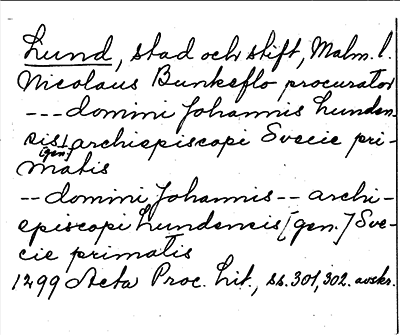 Lund, stad och stift, Malm. l.
Nicolaus Bunkeflo procurator
--- domini Johannis Lunden-
sis [gen.] archiepiscopi Svecie pri-
matis
-- domini Johannis -- archi-
episcopi Lundensis [gen.] Sve-
cie primatis
1299 Acta Proc. Lit., ss. 301, 302. avskr.